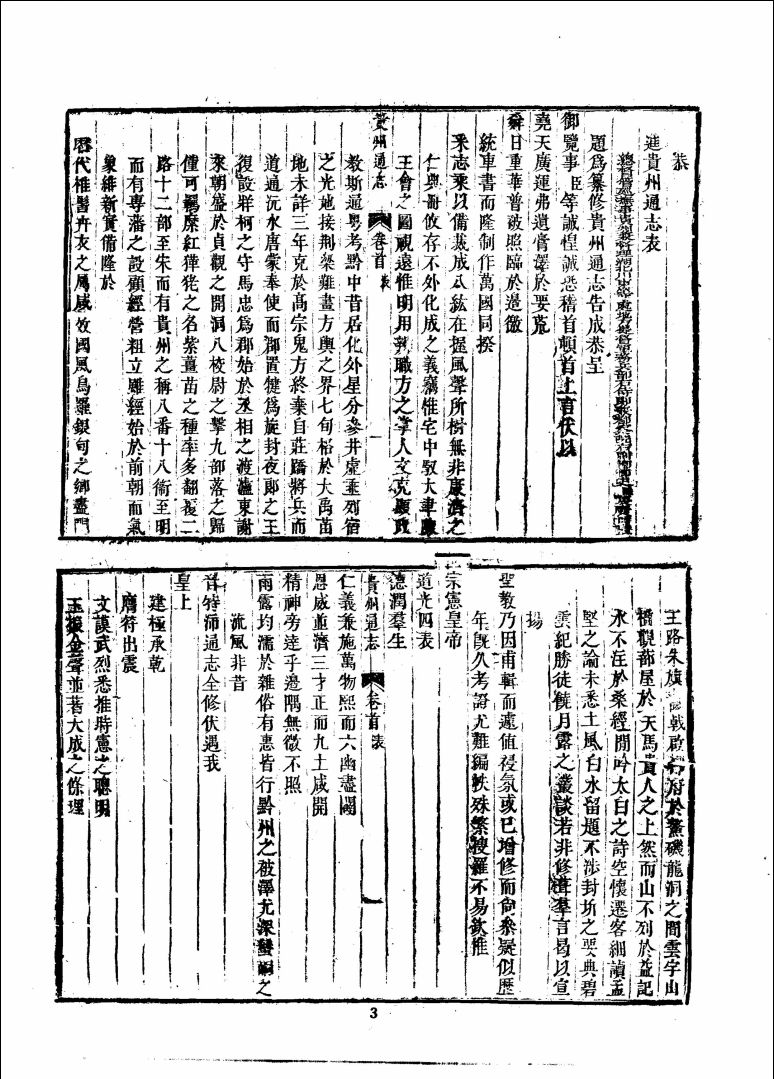 恭
進貴州通志表
題爲纂修貴州通志告成恭呈
御覽事臣等誠惶誠恐稽首頓首上言伏以
堯天廣運弗遺音譯於要荒
舜日重華普被照臨於邊徼
統車書而隆制作萬國同揆
釆志乘以備蒐成八紘在握風聲所樹無非康濟之
仁輿圖攸存不外化成之義竊惟宅中馭大聿
王會之圖視遠惟明用乘職方之掌人文克顯政
貴州通志 卷首 表
教斯通粤考黔中昔居化外星分參井虛垂列宿
之光地接荆梁難盡方輿之界七旬格於大禹苗
地未詳三年克於高宗鬼方終棄自莊蹻將兵而
道通沅水唐蒙奉使而郡置犍爲旋封夜郎之王
復設牂柯之守馬忠爲郡始於丞相之渡瀘東謝
來朝盛於貞觀之開洞八校尉之擊九部落之歸
僅可羈縻紅㺜狫之名紫薑苗之種率多翻覆二
路十二部至宋而有貴州之稱八番十八衞至明
而有專藩之設顧經營粗立雖經始於前朝而氣
象維新實備隆於
歷代椎髻卉衣之屬咸效國風鳥羅銀句之鄉盡
王路朱旗 戟啟 府於鰲磯龍洞之間雲字山
橋觀部屋於天馬貴人之上然而山不列於益記
水不注於桑經閒吟太白之詩空懷遷客細讀孟
堅之論未悉土風白水留題不涉封圻之要典碧
雲紀勝徒饒月露之叢談若非修輯羣言曷以宣
揚
聖教乃因甫輯而遽值祲氛或已增修而尙參疑似歷
年旣久考證尤難編帙殊繁搜羅不易欽惟
宗憲皇帝
道光四表
德潤羣生
貴州通志 卷首 表
仁義兼施萬物熙而六幽盡闢
恩威並濟三才正而九土咸開
精神旁達乎邊隅無微不照
雨露均濡於雜俗有惠皆行黔州之被澤尤深蠻峒之
流風非昔
普特沛通志全修伏遇我
皇上
建極承乾
膺符出震
文謨武烈悉推時憲之聰明
玉振金聲並著大成之條理
3